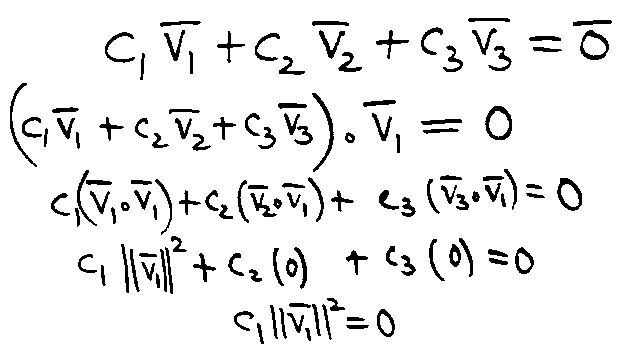 C₁ V̅₁ + C₂ V̅₂ + C₃ V̅₃ = 0̅
(C₁ V̅₁ + C₂ V̅₂ + C₃ V̅₃) ∘ V̅₁ = 0
C₁(V̅₁∘V̅₁) + C₂(V̅₂∘V̅₁) + C₃(V̅₃∘V̅₁) = 0
C₁ ||V̅₁||² + C₂ (0) + C₃ (0) = 0
C₁ ||V̅₁||² = 0